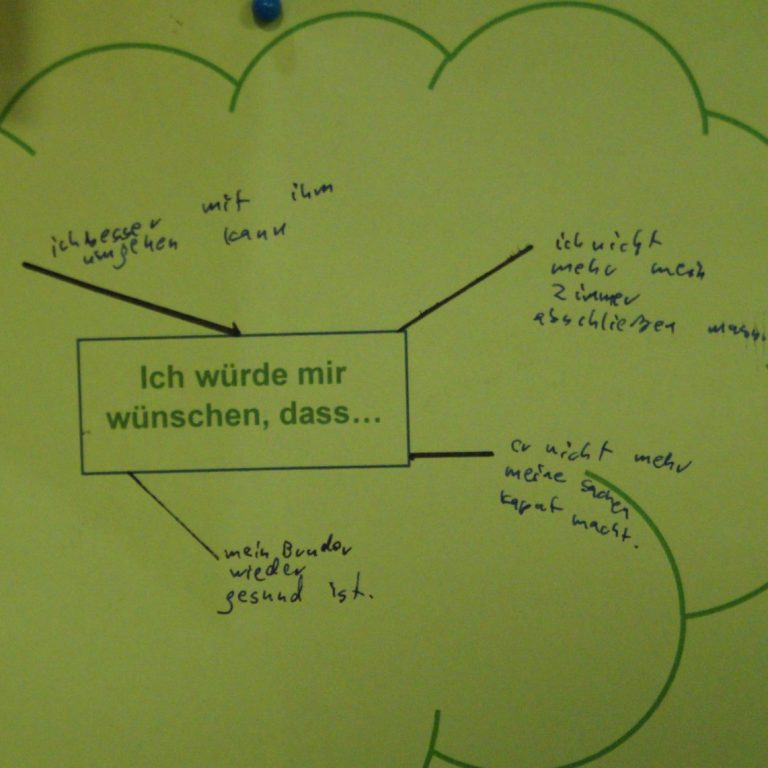 ichbesser mit ihm
umgehen kann
ich nicht
mehr mein
Zimmer
abschließen muss.
Ich würde mir
wünschen, dass...
er nicht mehr
meine Sachen
kaput macht.
mein Bruder
wieder
gesund ist.